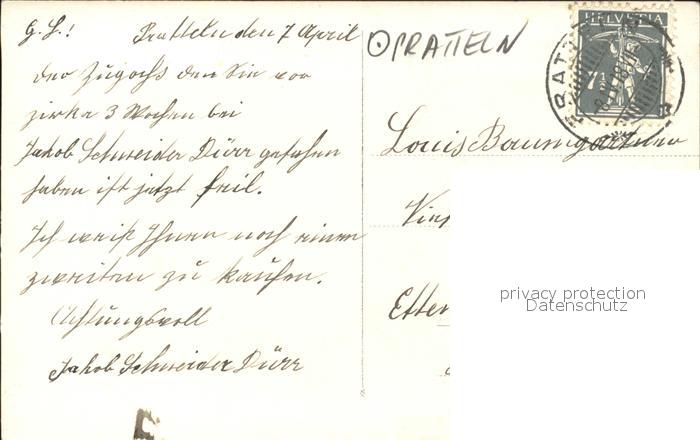 G. L.! Pratteln den 7 April
Der Zugochs den Sie vor
zirka 3 Wochen bei
Jakob Schneider Dürr gesehen
haben ist jetzt feil.
Ich weiß Ihnen noch einen
zweiten zu kaufen.
Achtungsvoll
Jakob Schneider Dürr
PRATTELN
HELVETIA
7½
Louis Baumgartner
Etter
privacy protection
Datenschutz